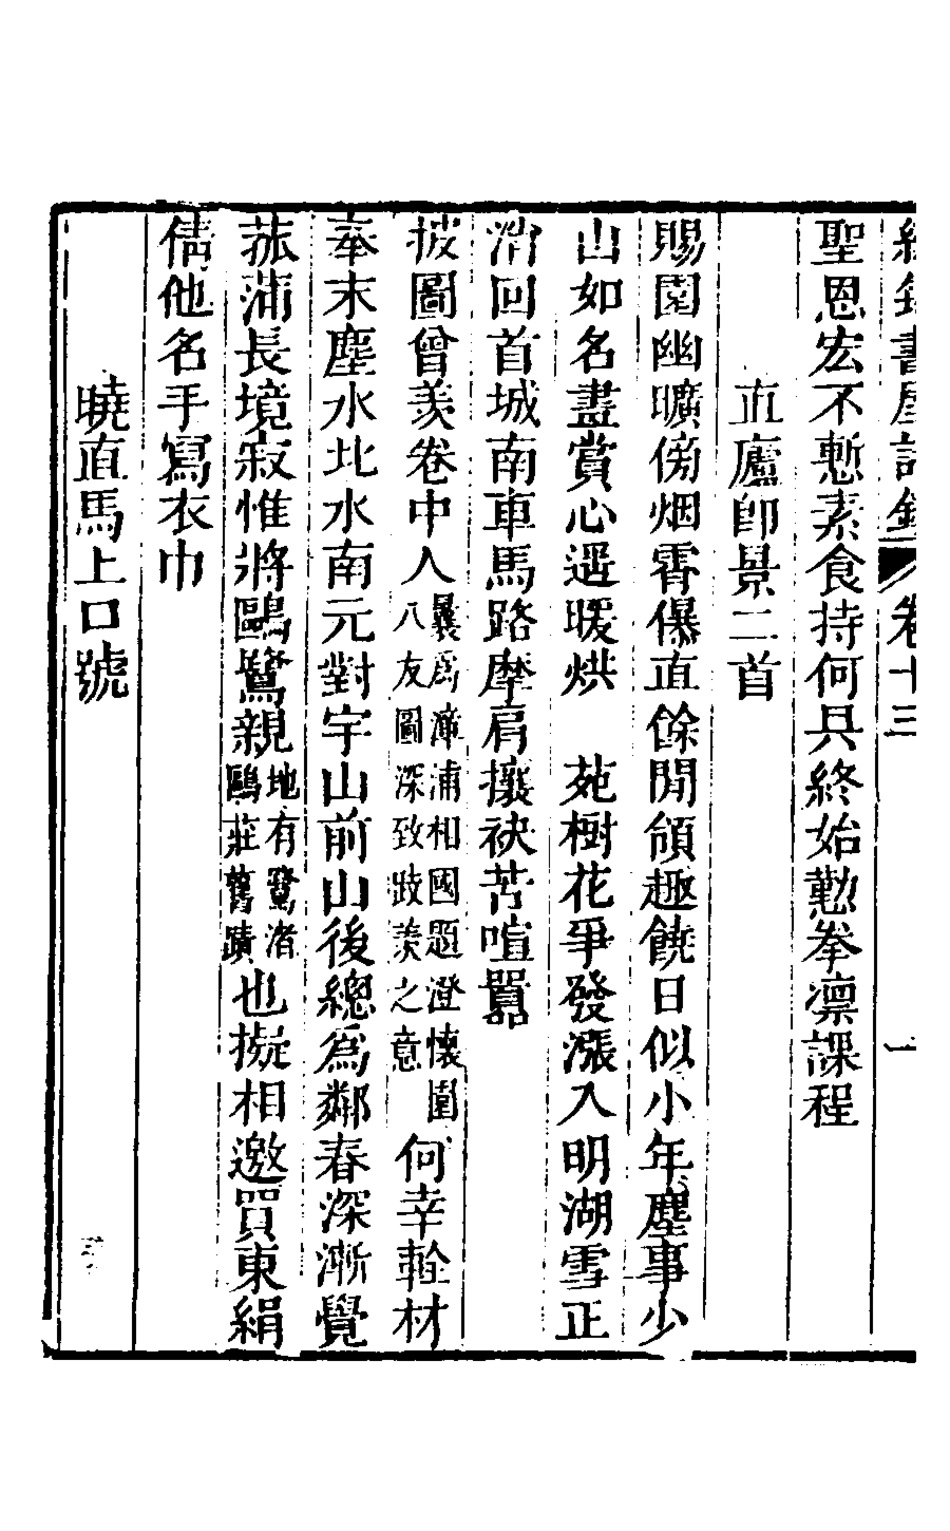 書屋詩鈔 卷十三 一
聖恩宏不慙素食持何具終始懃拳凛課程
直廬即景二首
賜園幽曠傍烟霄㬥直餘閒領趣饒日似小年塵事少
山如名畫賞心遥暖烘 苑樹花爭發漲入明湖雪正
消回首城南車馬路摩肩攘袂苦喧囂
披圖曾羨卷中人曩爲漳浦相國題澄懷園八友圖深致歆羨之意何幸輇材
奉末塵水北水南元對宇山前山後總爲鄰春深漸覺
菰蒲長境寂惟將鷗鷺親地有鷺渚鷗莊舊蹟也擬相邀買東絹
倩他名手寫衣巾
曉直馬上口號